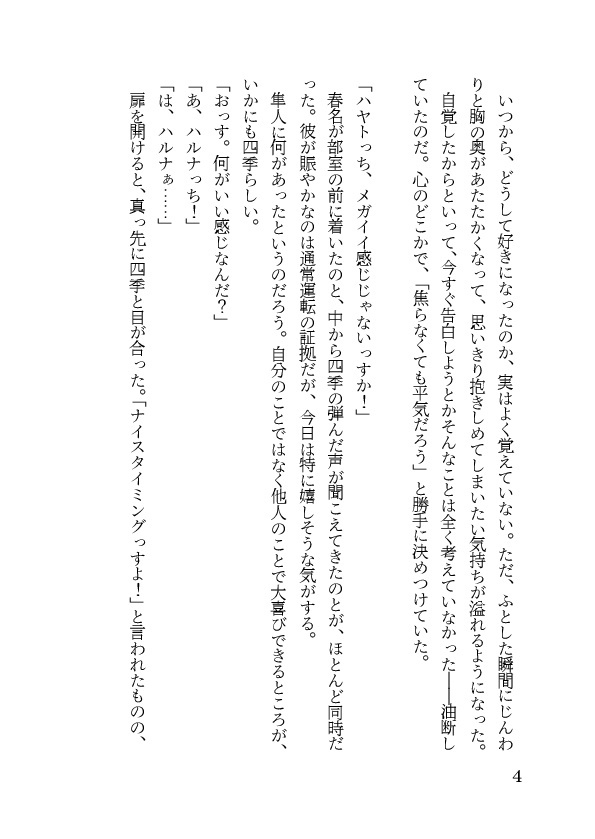 いつから、どうして好きになったのか、実はよく覚えていない。ただ、ふとした瞬間にじんわ
りと胸の奥があたたかくなって、思いきり抱きしめてしまいたい気持ちが溢れるようになった。
自覚したからといって、今すぐ告白しようとかそんなことは全く考えていなかった――油断し
ていたのだ。心のどこかで、「焦らなくても平気だろう」と勝手に決めつけていた。
「ハヤトっち、メガイイ感じじゃないっすか！」
春名が部室の前に着いたのと、中から四季の弾んだ声が聞こえてきたのとが、ほとんど同時だ
った。彼が賑やかなのは通常運転の証拠だが、今日は特に嬉しそうな気がする。
隼人に何があったというのだろう。自分のことではなく他人のことで大喜びできるところが、
いかにも四季らしい。
「おっす。何がいい感じなんだ？」
「あ、ハルナっち！」
「は、ハルナぁ……」
扉を開けると、真っ先に四季と目が合った。「ナイスタイミングっすよ！」と言われたものの、
4